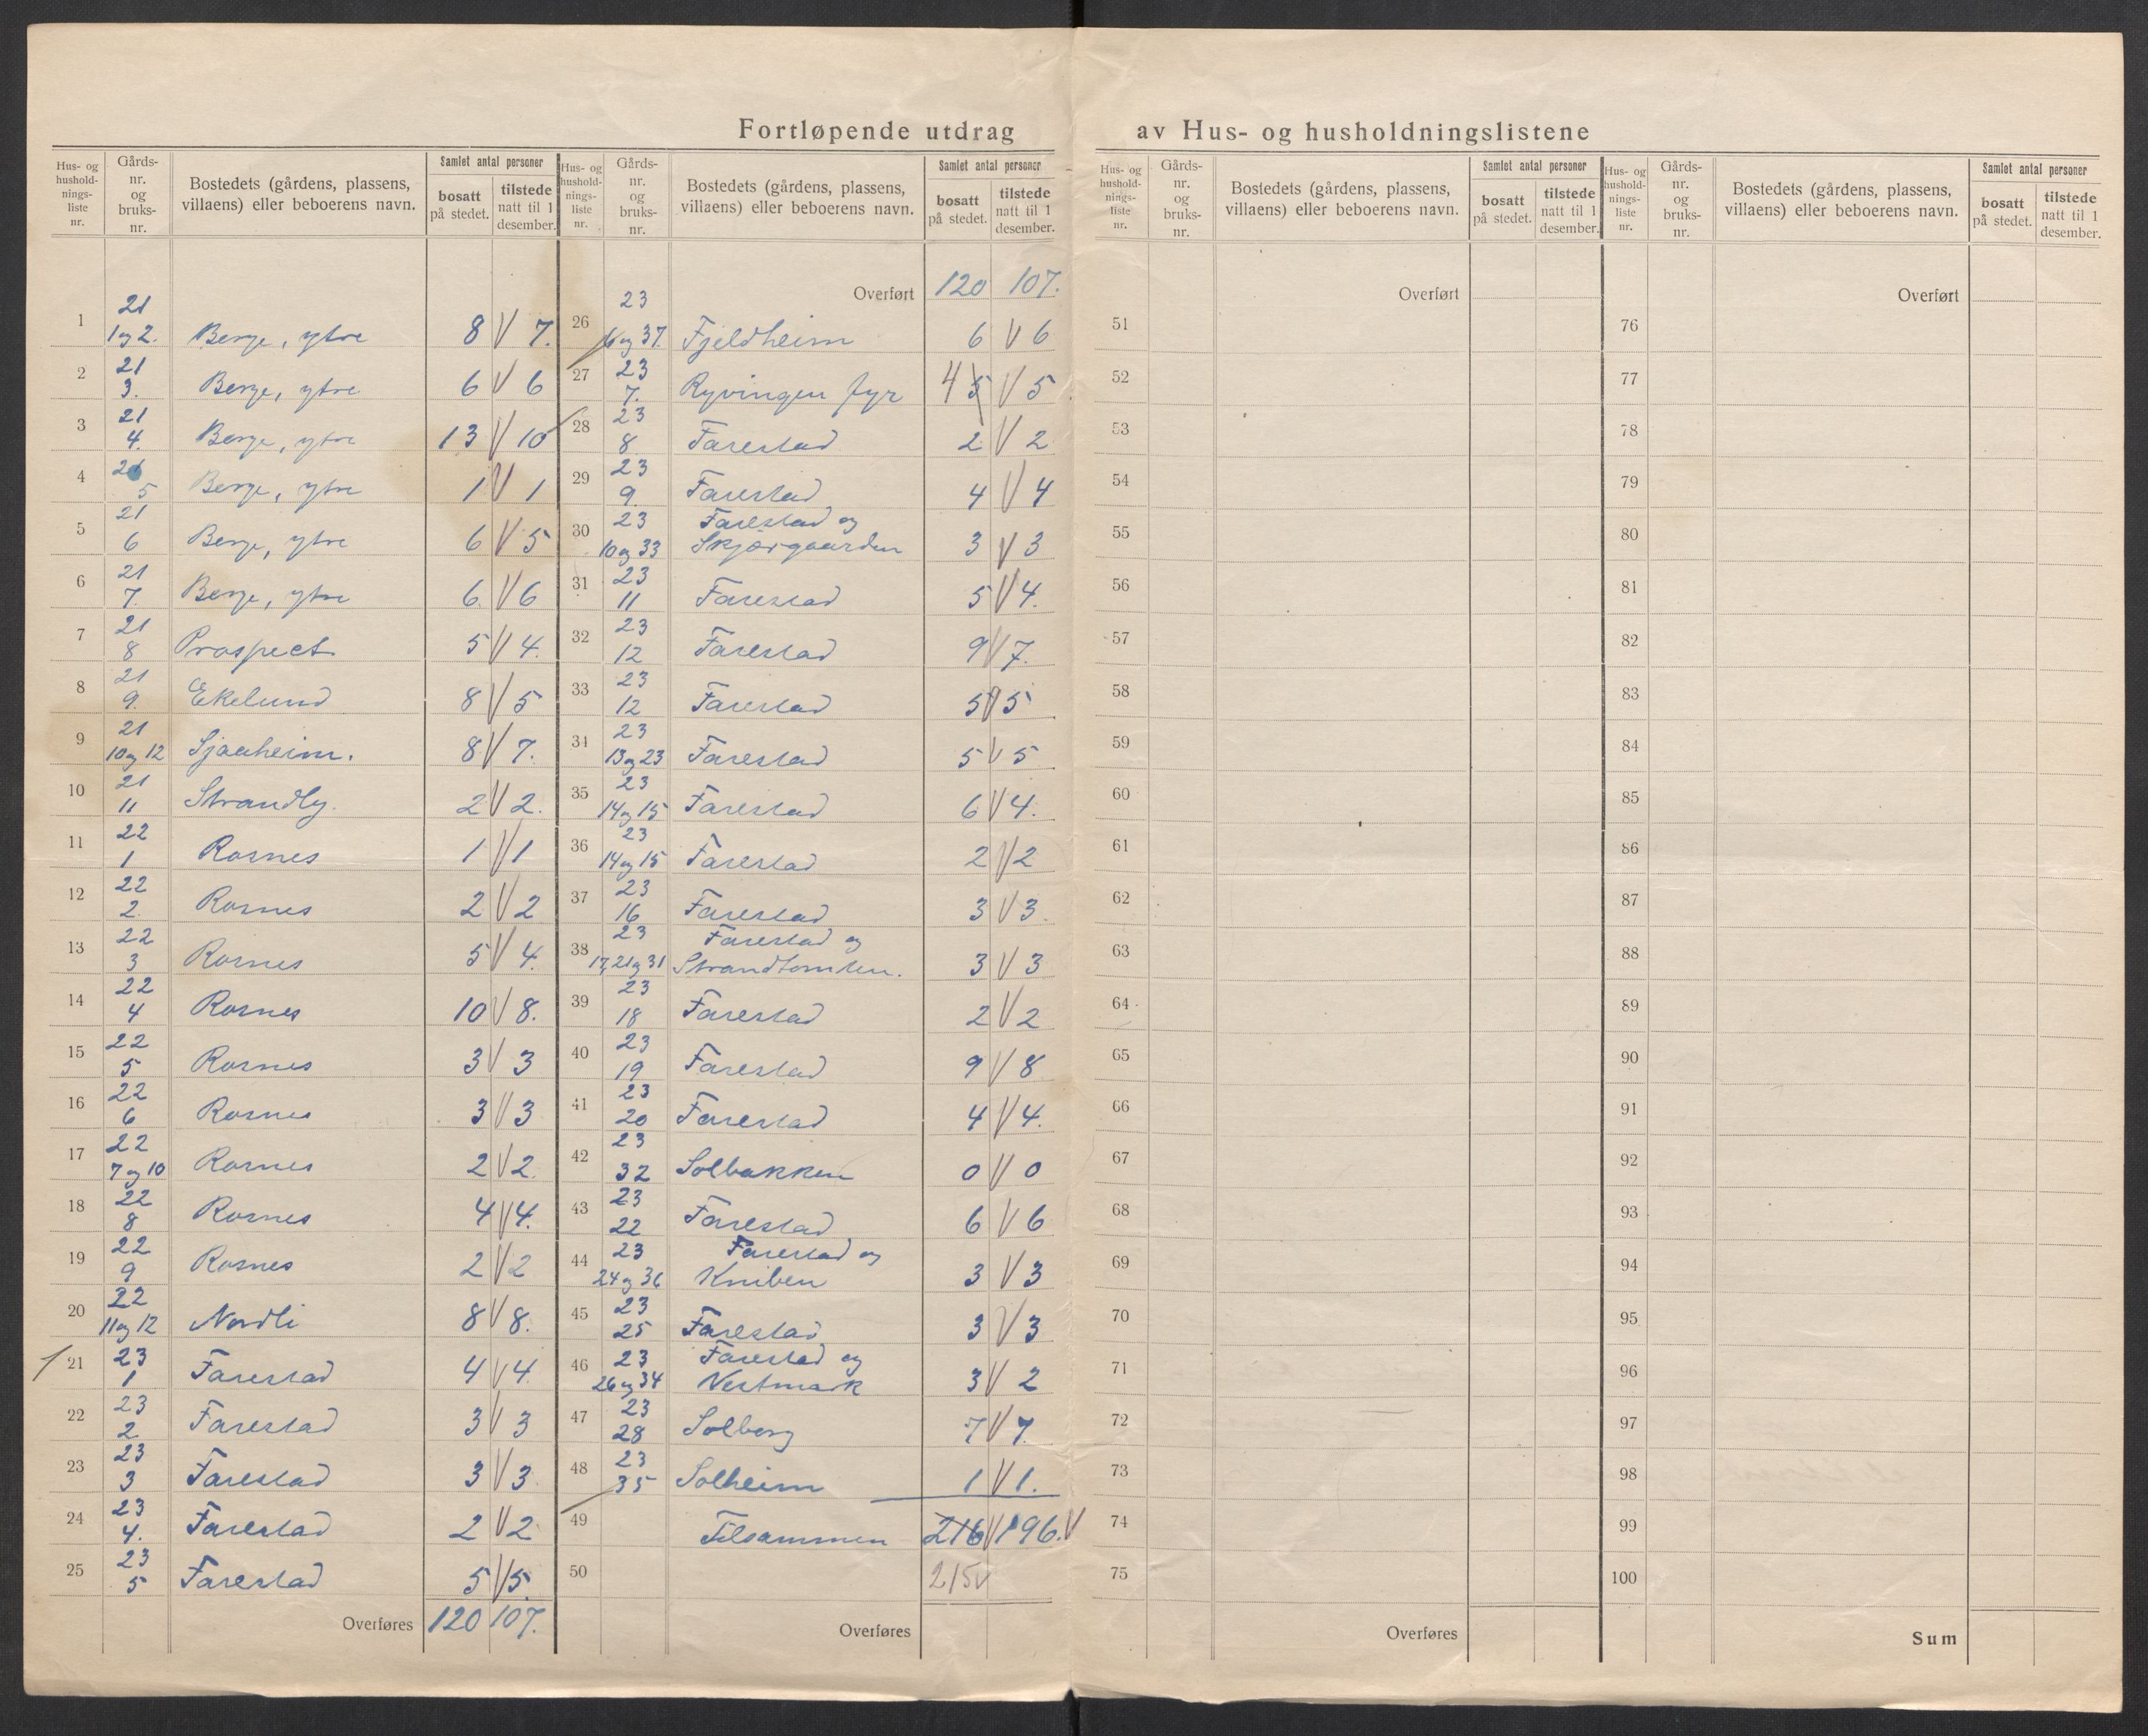 Fortløpende utdrag av Hus- og husholdningslistene
Hus- og hushold- nings- liste nr. Gårds- nr. og bruks- nr. Bostedets (gårdens, plassens, villaens) eller beboerens navn. Samlet antal personer bosatt på stedet. tilstede natt til 1 desember.
1 21 1 og 2. Berge, ytre 8 V 7.
2 21 3. Berge, ytre 6 V 6
3 21 4. Berge, ytre 13 V 10
4 21 5 Berge, ytre 1 V 1
5 21 6 Berge, ytre 6 V 5
6 21 7. Berge, ytre 6. V 6
7 21 8 Prospect 5 V 4.
8 21 9. Ekelund 8 V 5
9 21 10 og 12 Sjaaheim. 8 V 7.
10 21 11 Strandly. 2 V 2.
11 22 1 Rosnes 1 V 1
12 22 2. Rosnes 2 V 2
13 22 3 Rosnes 5 V 4.
14 22 4 Rosnes 10 V 8.
15 22 5 Rosnes 3 V 3
16 22 6 Rosnes 3 V 3
17 22 7 og 10 Rosnes 2 V 2.
18 22 8 Rosnes 4 V 4.
19 22 9 Rosnes 2 V 2
20 22 11 og 12 Nordli 8 V 8.
21 23 1 Farestad 4 V 4.
22 23 2. Farestad 3 V 3
23 23 3 Farestad 3 V 3
24 23 4. Farestad 2 V 2
25 23 5 Farestad 5 V 5.
Overføres 120 107.
Hus- og hushold- nings- liste nr. Gårds- nr. og bruks- nr. Bostedets (gårdens, plassens, villaens) eller beboerens navn. Samlet antal personer bosatt på stedet. tilstede natt til 1 desember.
Overført 120 107.
26 23 6 og 37. Fjeldheim 6 V 6
27 23 7. Ryvingen fyr 4 5 V 5
28 23 8 Farestad 2 V 2
29 23 9. Farestad 4 V 4
30 23 Farestad og
10 og 33 Skjærgaarden 3 V 3
31 23 11 Farestad 5 V 4.
32 23 12 Farestad 9 V 7.
33 23 12 Farestad 5 V 5
34 23 13 og 23 Farestad 5 V 5
35 23 14 og 15 Farestad 6 V 4.
36 23 14 og 15 Farestad 2 V 2
37 23 16 Farestad 3 V 3.
38 23 Farestad og
17, 21 og 31 Strandtomten. 3 V 3
39 23 18 Farestad 2 V 2
40 23 19 Farestad 9 V 8
41 23 20 Farestad 4 V 4.
42 23 32 Solbakken 0 V 0
43 23 22 Farestad 6 V 6
44 23 Farestad og
24 og 36 Kniben 3 V 3
45 23 25 Farestad 3 V 3
46 23 Farestad og
26 og 34 Vestmark 3 V 2
47 23 28 Solberg 7 V 7
48 23 35 Solheim 1 V 1.
49 Tilsammen 216 V 196. V
50 215 V
Overføres
Hus- og hushold- nings- liste nr. Gårds- nr. og bruks- nr. Bostedets (gårdens, plassens, villaens) eller beboerens navn. Samlet antal personer bosatt på stedet. tilstede natt til 1 desember.
Overført
51
52
53
54
55
56
57
58
59
60
61
62
63
64
65
66
67
68
69
70
71
72
73
74
75
Overføres
Hus- og hushold- nings- liste nr. Gårds- nr. og bruks- nr. Bostedets (gårdens, plassens, villaens) eller beboerens navn. Samlet antal personer bosatt på stedet. tilstede natt til 1 desember.
Overført
76
77
78
79
80
81
82
83
84
85
86
87
88
89
90
91
92
93
94
95
96
97
98
99
100
Sum